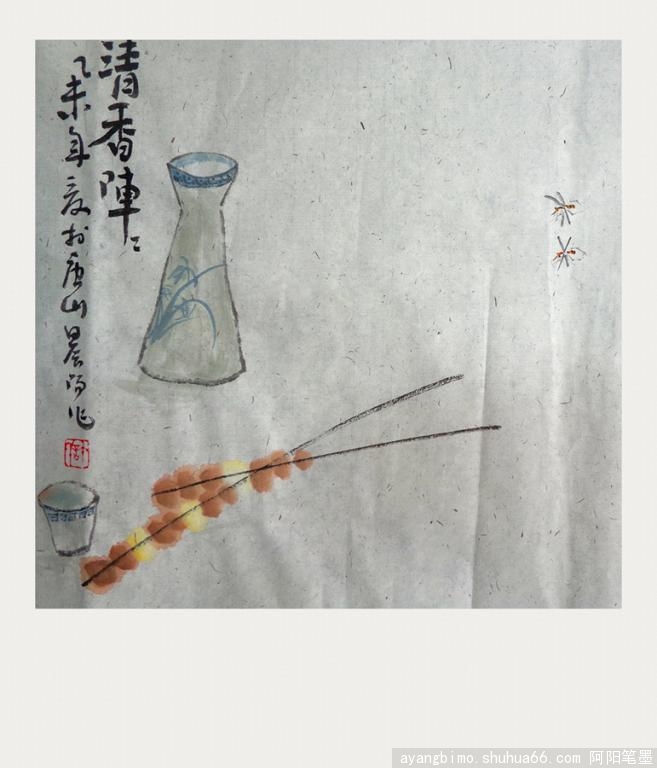 清香陣〻
乙未年夏於唐山晨阳作
ayangbimo.shuhua66.com 阿阳笔墨